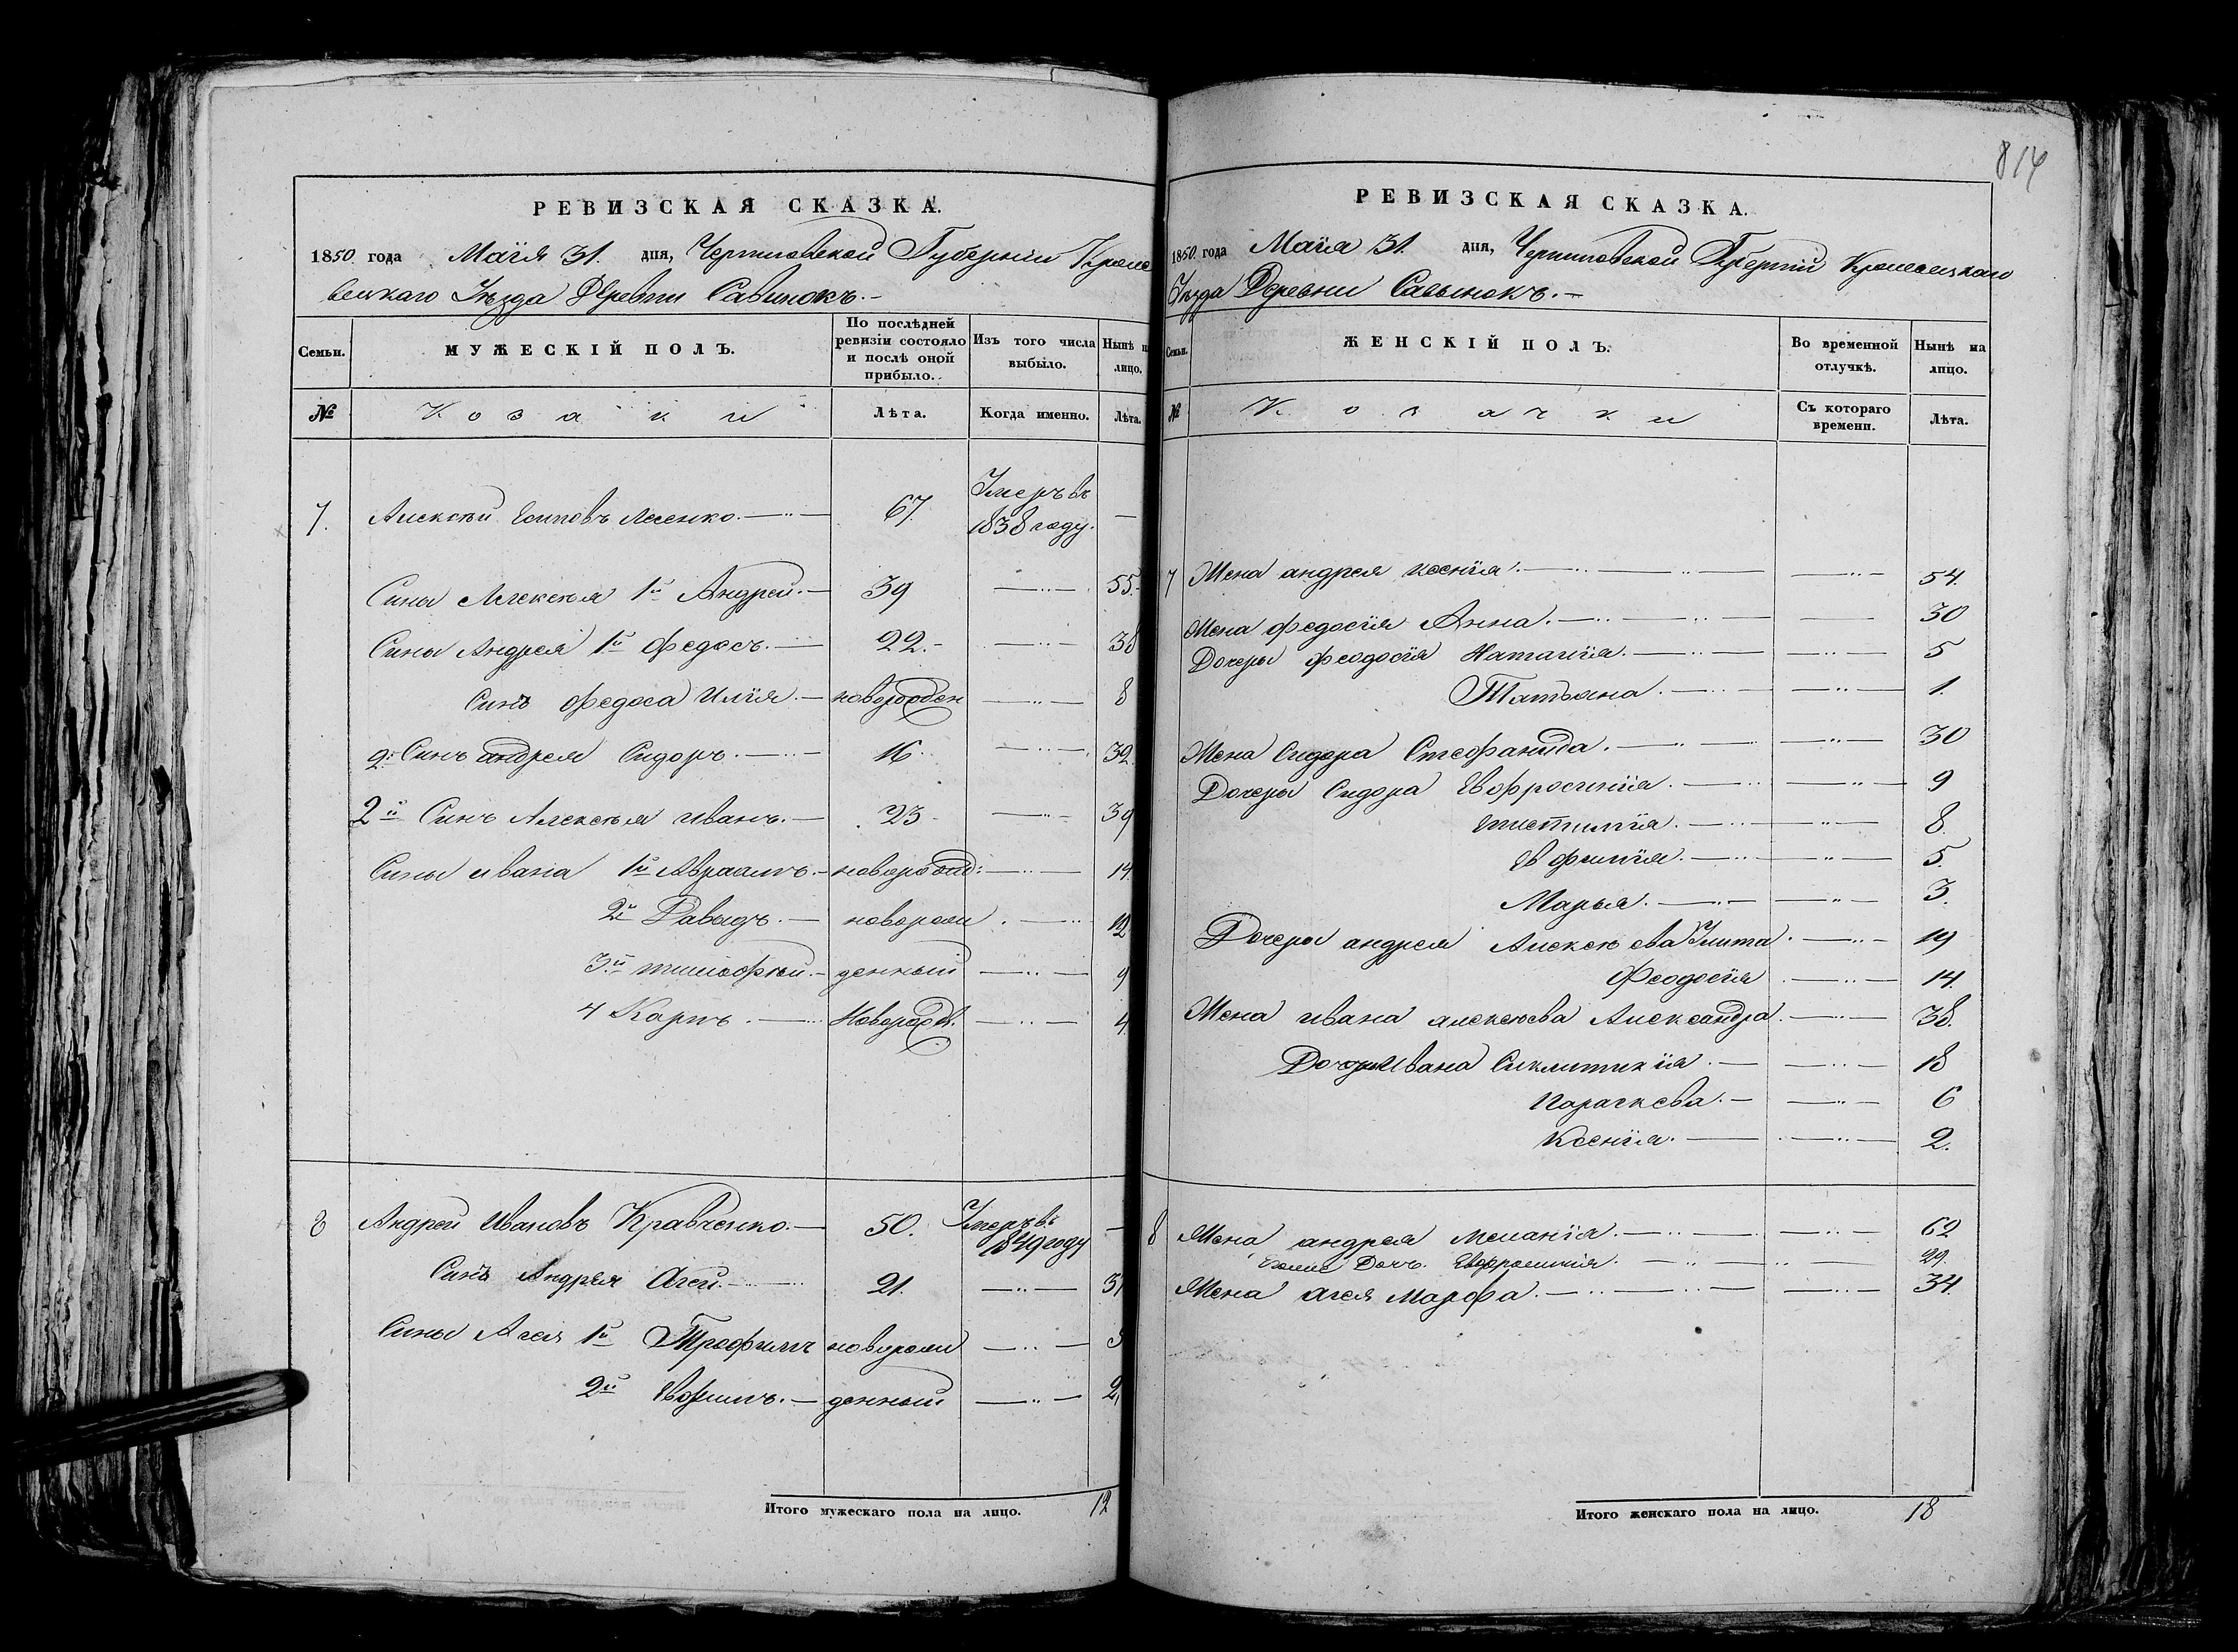 814
РЕВИЗСКАЯ СКАЗКА.
1850 года Маія 31. дня, Черниговской Губерніи Кроле
вецкаго Уѣзда Деревни Савинокъ.
Семьи.
МУЖЕСКІЙ ПОЛЪ.
По послѣдней ревизіи состояло и послѣ оной прибыло.
Изъ того числа выбыло.
Нынѣ на лицо.
№
Козаки
Лѣта.
Когда именно.
Лѣта.
7. Алексѣй Есиповъ Лесенко. 67. Умеръ въ 1838 году. —
Сины Алексѣя 1й Андрей. 39 55.
Сины Андрея 1й Федосъ. 22. 38
Синъ Федоса Илія. новорожден 8
2. Синъ андрея Сидоръ. 16. 32.
2й Синъ Алексѣя иванъ. 23 39
Сины ивана 1й Авраамъ. новорожд: 14.
2й Давыдъ. новорож 12
3й тимофѣй. денный 9
4 Карпъ. Новорожд. 4.
8 Андрей Ивановъ Кравченко. 50. Умеръ въ 1849 году —
Синъ Андрея Агей. 21. 37
Сины Агея 1й Трофимъ новорож
2й Евфимъ. денный 2.
Итого мужескаго пола на лицо. 12
РЕВИЗСКАЯ СКАЗКА.
1850 года Маія 31. дня, Черниговской Губерніи Кролевецкаго
Уѣзда Деревни Савынокъ.
Семьи.
ЖЕНСКІЙ ПОЛЪ.
Во временной отлучкѣ.
Нынѣ на лицо.
№
Козачки
Съ котораго времени.
Лѣта.
7 Жена андрея ксенія. 54.
Жена федосія Анна. 30
Дочеры феодосія Наталія. 5
Татьяна. 1.
Жена Сидора Стефанида. 30
Дочеры Сидора Евфросинія. 9
8.
Евфимія. 5.
Марья. 3.
Дочеры андрея Алексѣева Улита. 19
Феодосія 14.
Жена ивана алексѣева Александра. 38.
Дочери Ивана Сиклитикія. 18
Параскева. 6
Ксенія. 2.
8 Жена андрея меланія. 62
Дочь. Евфросинія. 29.
Жена агея марфа. 34.
Итого женскаго пола на лицо. 18